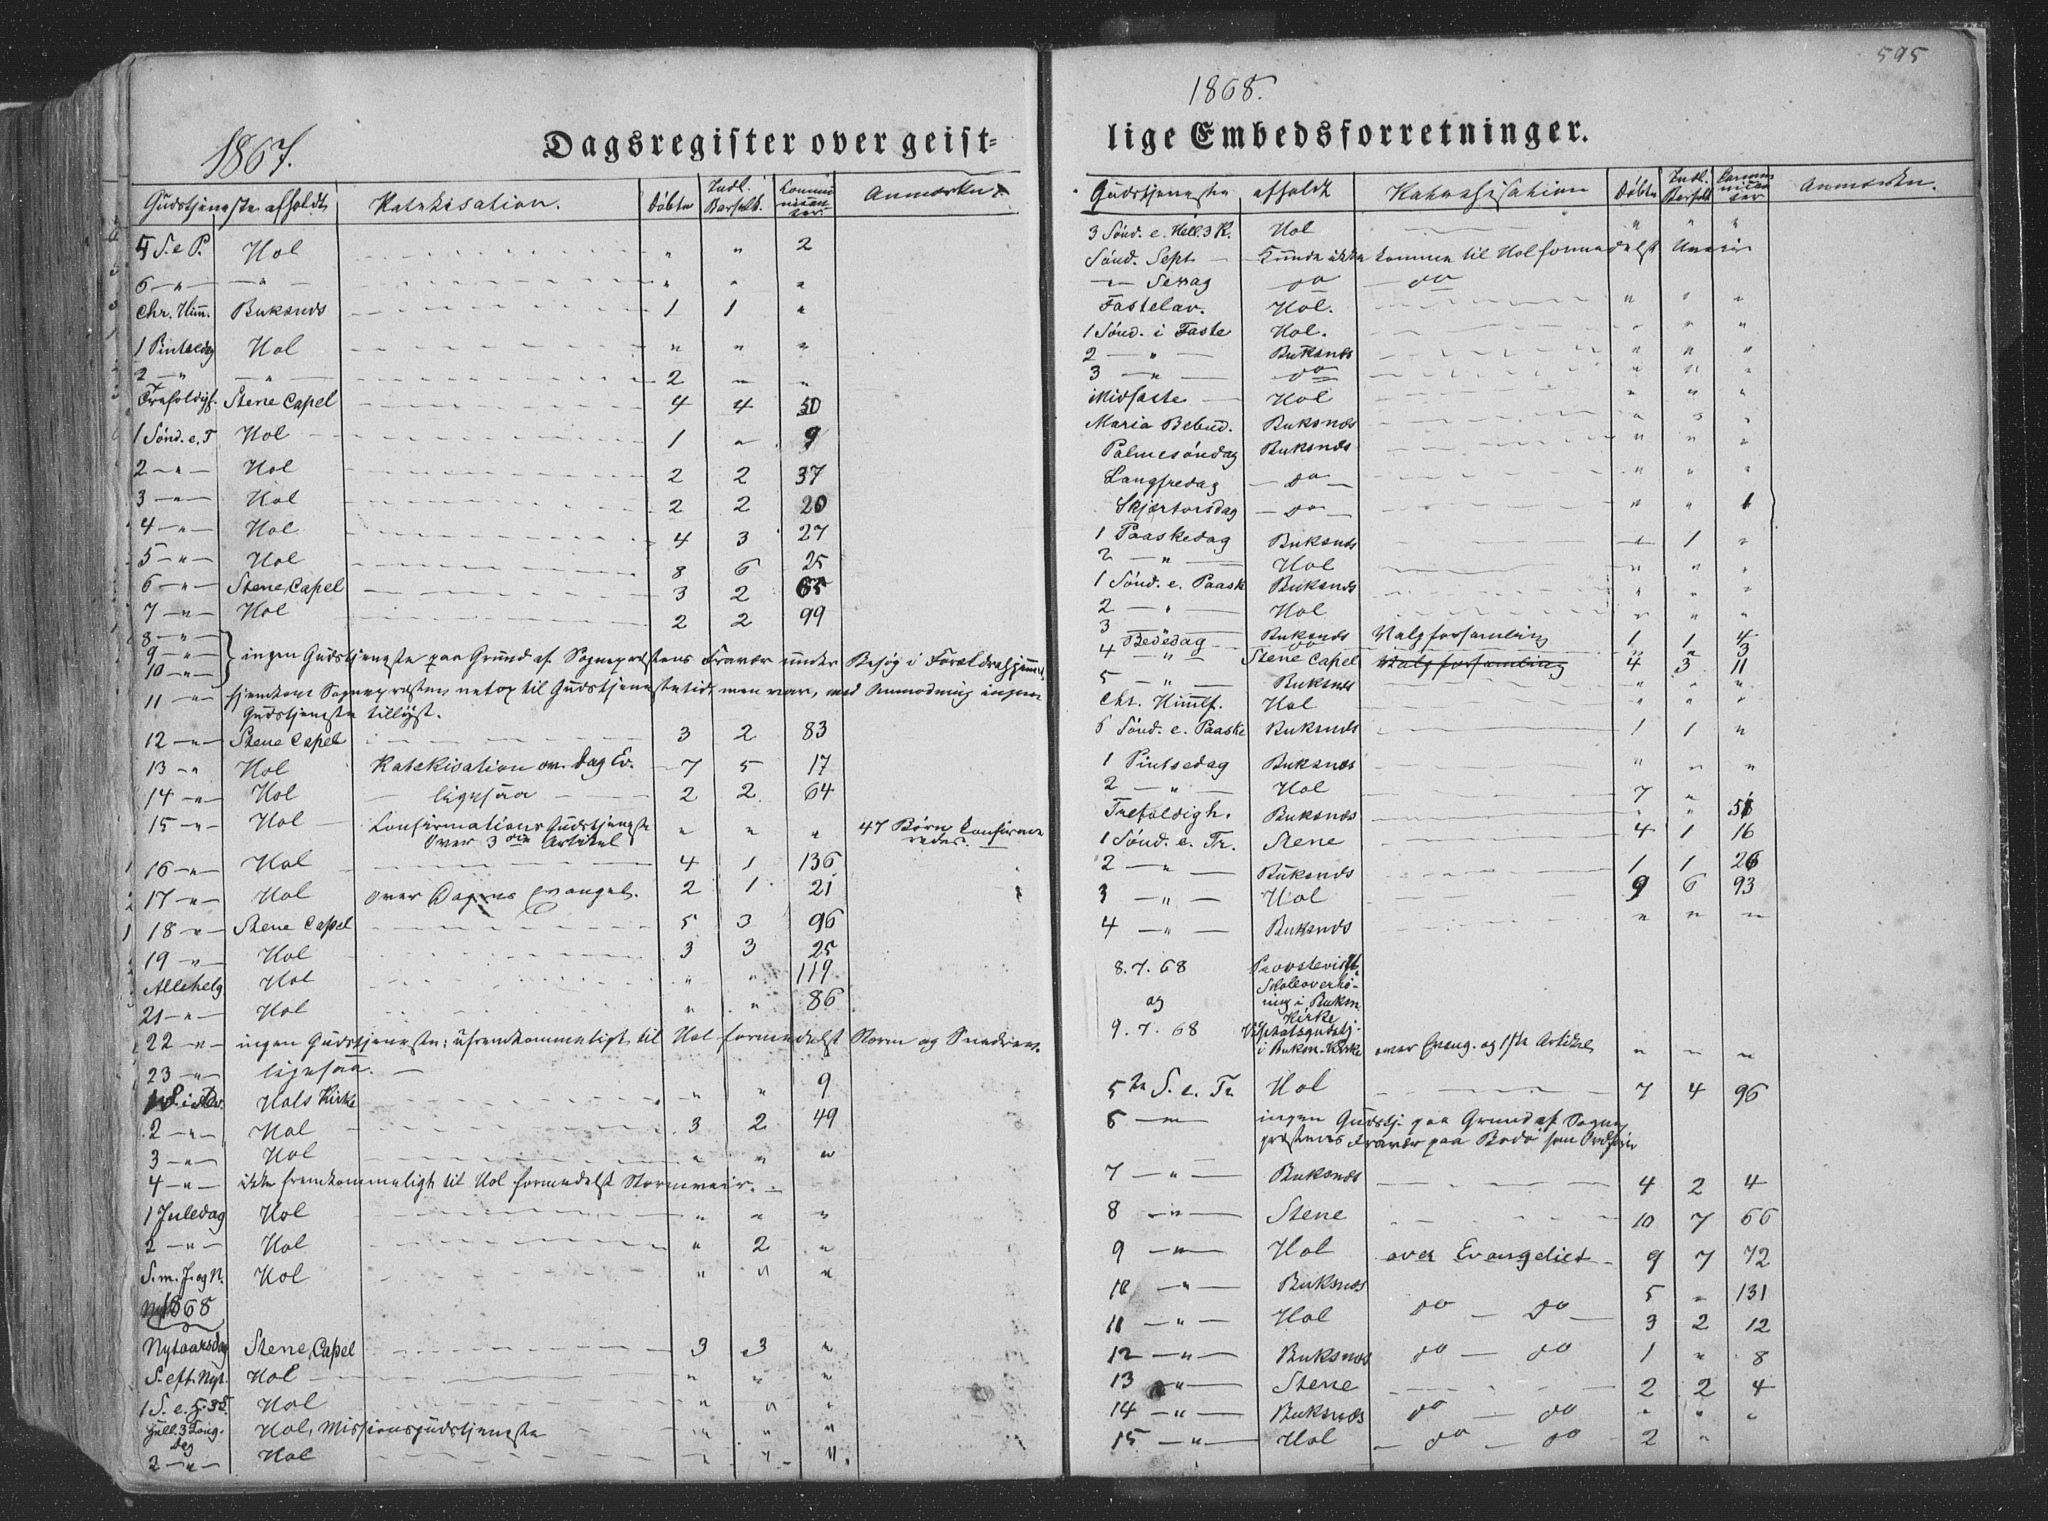 595
1867.
Dagsregister over geist=
Gudstjeneste afholdt Katekisation. Døbte Indl. Barselk. Communicanter. Anmærkn.
5 S. e P. Hol " " 2
6 —"— —"— " " "
Chr. Him. Buksnæs 1 1 "
1 Pintsedag Hol " " "
2 —"— —"— 2 " "
Trefoldigh. Stene Capel 4 4 50
1 Sønd. e. T Hol 1 " 9
2 —"— Hol 2 2 37
3 —"— Hol 2 2 20
4 —"— Hol 4 3 27
5 —"— Hol 8 6 25
6 —"— Stene Capel 3 2 65
7 —"— Hol 2 2 99
8 —"—
9 —"— } ingen Gudstjeneste paa Grund af Sognepræstens Fravær under Besøg i Forældrehjemmet,
10 —"—
11 —"— hjemkom Sognepræsten netop til Gudstjenestetid, men var, med Anmodning ingen
Gudstjeneste tillyst.
12 —"— Stene Capel 3 2 83
13 —"— Hol Katekisation ov. Dag Ev. 7 5 17
14 —"— Hol — ligesaa — 2 2 64
15 —"— Hol Confirmations Gudstjeneste " " " 47 Børn Confirme
over 3die Artikel redes.
16 —"— Hol 4 1 136
17 —"— Hol over Dagens Evangel. 2 1 21
18 —"— Stene Capel 5 3 96
19 —"— Hol 3 3 25
Allehelg. Hol " " 119
21 —"— Hol " " 86
22 —"— ingen Gudstjeneste; ufremkommeligt til Hol formedelst Storm og Snedrev.
23 —"— ligesaa. —
1 S. i Adv. Hols Kirke " " 9
2 —"— Hol 3 2 49
3 —"— Hol " " "
4 —"— ikke fremkommeligt til Hol formedelst Stormveir. —
1 Juledag Hol " " "
2 —"— Hol " 2 "
S. m. J. og N. Hol " " "
1868
Nytaarsdag Stene Capel 3 3 "
S. eft. Nyt. Hol " " "
1 S. e. H. 3 K. Hol " " "
Hell. 3 Kong. Dag Hol, Missionsgudstjeneste " " "
2 —"— Hol " " "
1868.
lige Embedsforretninger.
Gudstjeneste afholdt Katechisation Døbte Indl. Barselk Communicanter Anmærkn.
3 Sønd. e. Hell. 3 K. Hol " " "
Sønd. Sept — Kunde ikke komme til Hol formedelst Uveir
—"— Sexag do — do —
Fastelav. Hol. " " "
1 Sønd. i Faste Hol. " " "
2 —"— Buksnæs " " "
3 —"— do " " "
Midfaste — Hol " " "
Maria Bebud. Buksnæs " " "
Palmesøndag Buksnæs " " "
Langfredag — do — " " "
Skjærtorsdag — do — " " 1
1 Paaskedag Buksnæs " 1 "
2 —"— Hol " " "
1 Sønd. e. Paaske Buksnæs " " "
2 —"— Hol " " "
3 Bededag Buksnæs Valgforsamling 1 1 4
" " 3
4 —"— Stene Capel Valgforsamling 4 3 11
5 —"— Buksnæs " " "
Chr. Himmlf. Hol " " "
6 Sønd. e. Paaske Buksnæs 1 1 "
1 Pintsedag Buksnæs " " "
2 —"— Hol 7 " "
Trefoldigh. Buksnæs " " 51
1 Sønd. e. Tr. Stene 4 1 16
2 —"— Buksnæs 1 1 26
3 —"— Hol 9 6 93
4 —"— Buksnæs " " "
8. 7. 68 Provstevisit.
Skoleoverhø-
og ring i Buksn.
Kirke
9. 7. 68 Visitatsgudstj.
i Buksn. Kirke over Evang. og 1ste Artikel " " "
5te S. e. Tr Hol 7 4 96
6 —"— ingen Gudstj. paa Grund af Sogne
præstens Fravær paa Bodø som Ordfører
7 —"— Buksnæs 4 2 4
8 —"— Stene 10 7 66
9 —"— Hol over Evangeliet 9 7 72
10 —"— Buksnæs 5 " 131
11 —"— Hol do — do — 3 2 12
12 —"— Buksnæs do — do 1 " 8
13 —"— Stene 2 2 4
14 —"— Buksnæs do — do " " "
15 —"— Hol — do — do 2 "